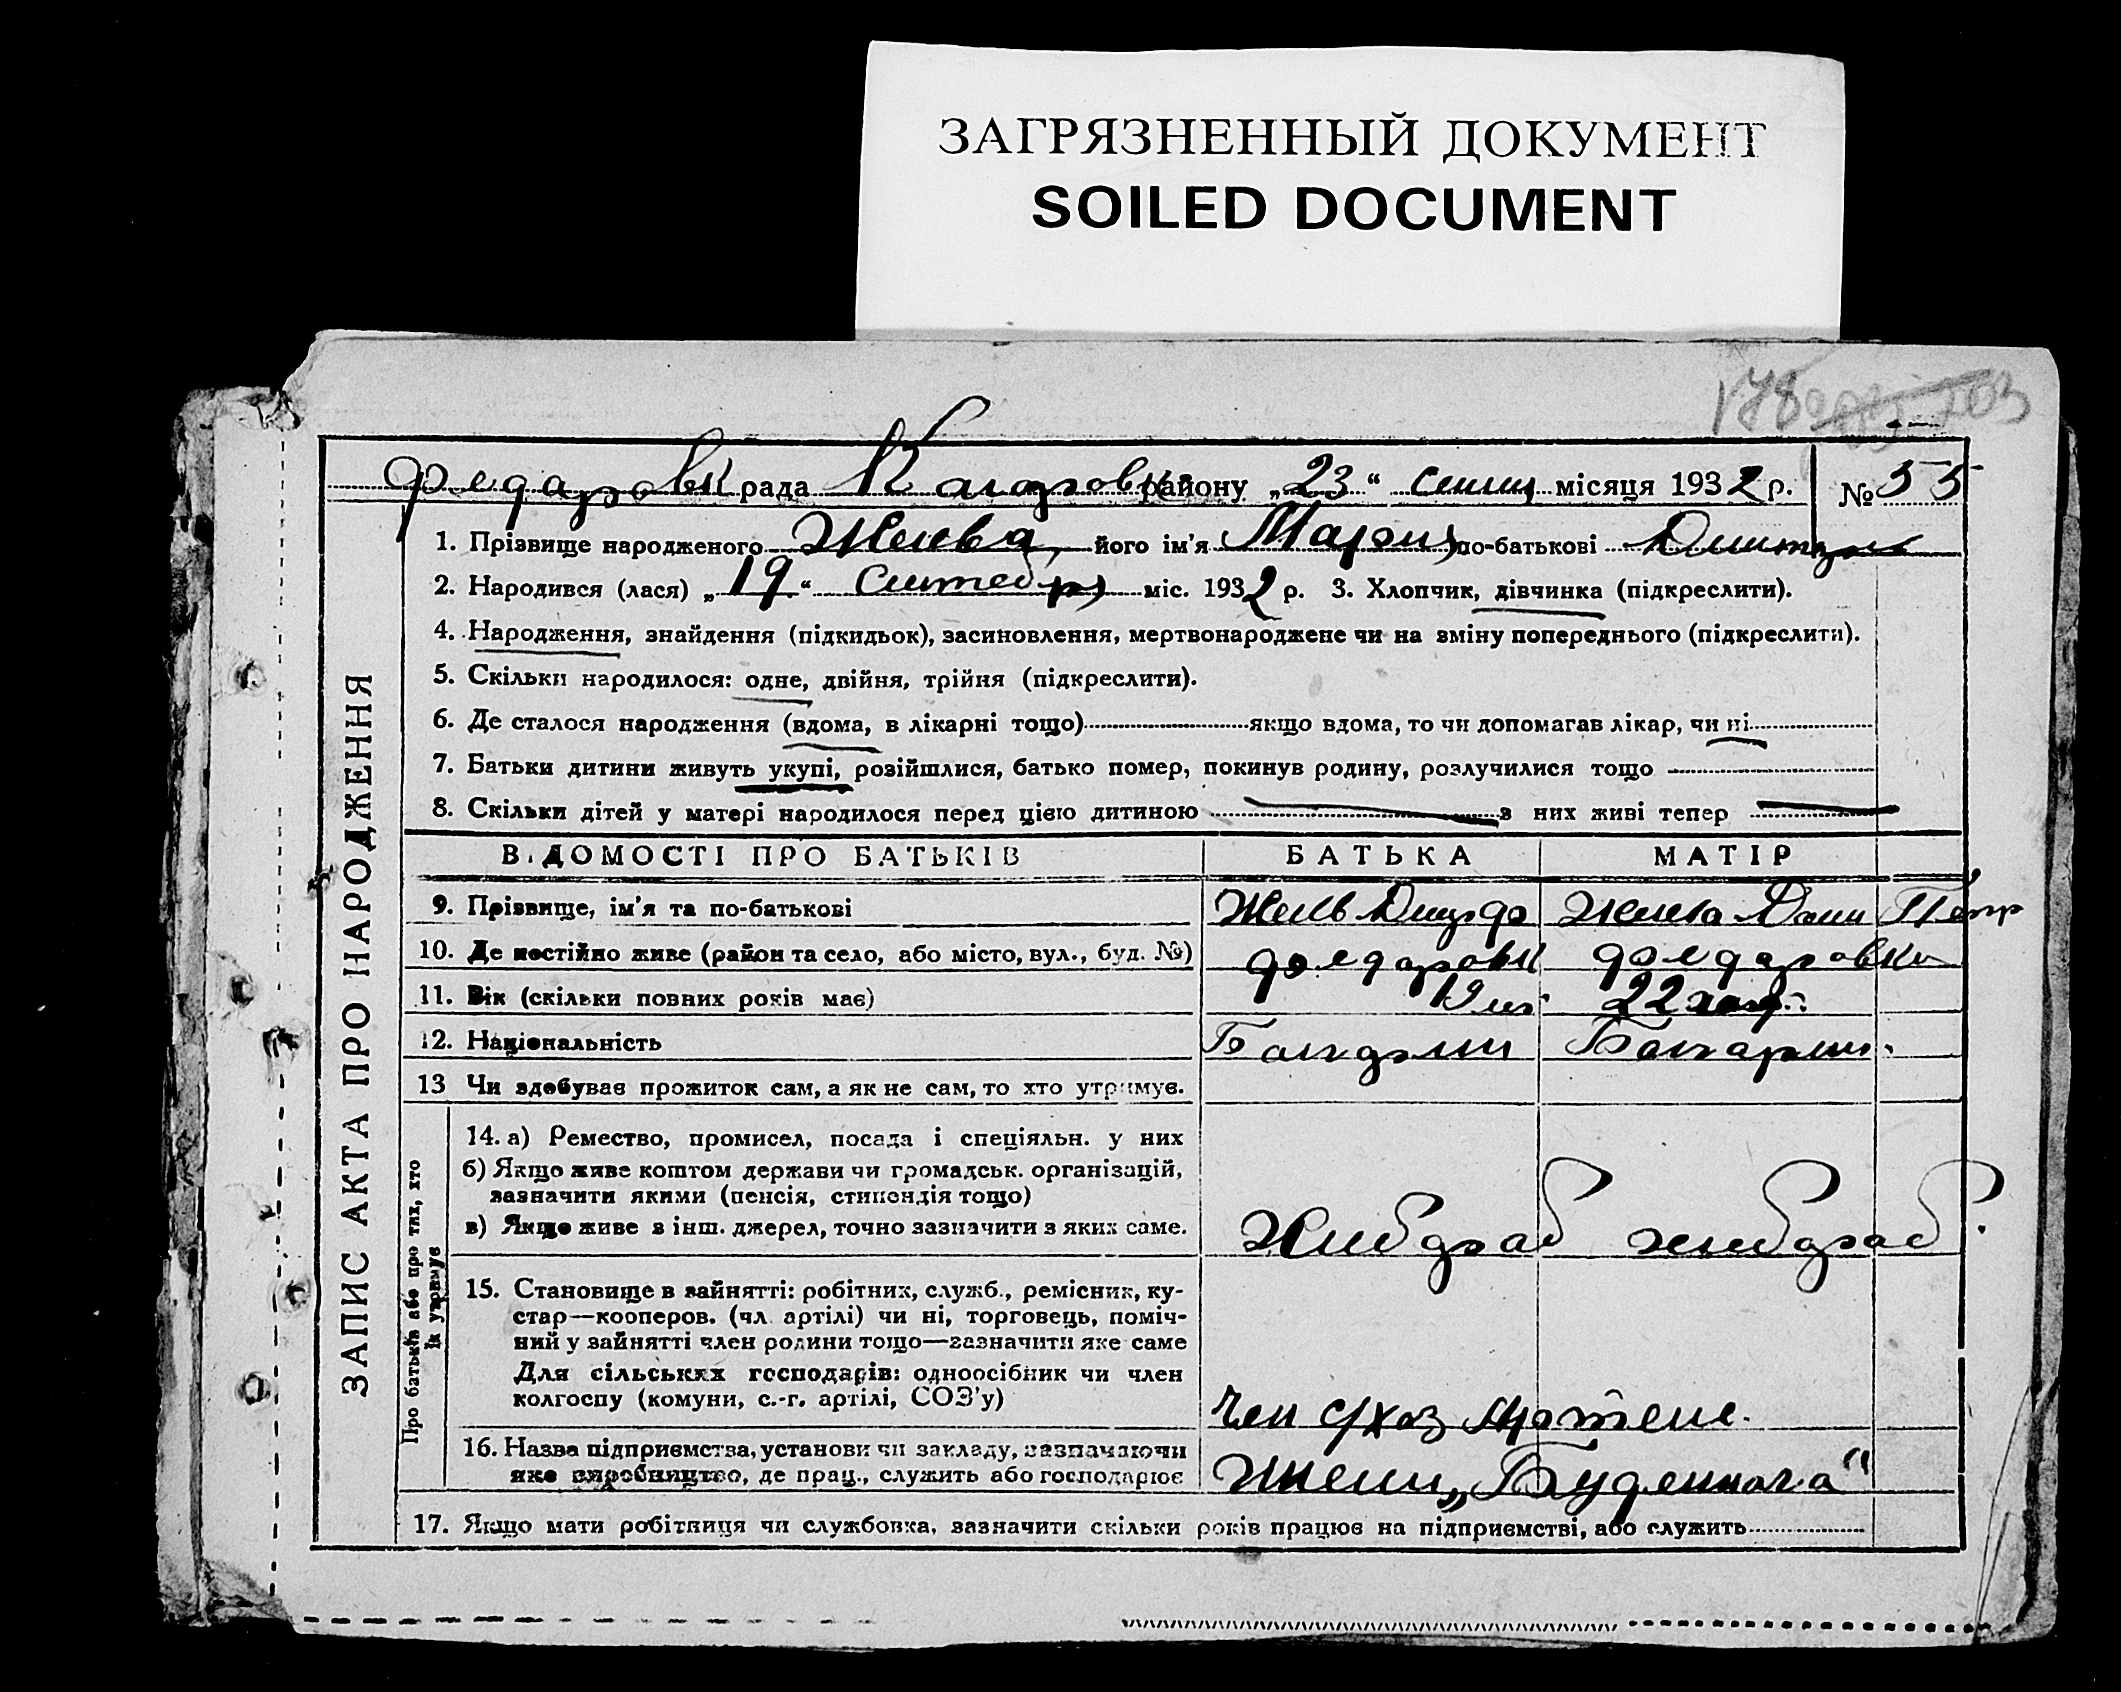 ЗАГРЯЗНЕННЫЙ ДОКУМЕНТ
SOILED DOCUMENT
178
рада району „23“ місяця 1932 р. № 55
ЗАПИС АКТА ПРО НАРОДЖЕННЯ
1. Прізвище народженого його ім'я Мария по-батькові
2. Народився (лася) „19“ міс. 1932 р. 3. Хлопчик, дівчинка (підкреслити).
4. Народження, знайдення (підкидьок), засиновлення, мертвонароджене чи на зміну попереднього (підкреслити).
5. Скільки народилося: одне, двійня, трійня (підкреслити).
6. Де сталося народження (вдома, в лікарні тощо) якщо вдома, то чи допомагав лікар, чи ні
7. Батьки дитини живуть укупі, розійшлися, батько помер, покинув родину, розлучилися тощо
8. Скільки дітей у матері народилося перед цією дитиною з них живі тепер
ВІДОМОСТІ ПРО БАТЬКІВ БАТЬКА МАТІР
9. Прізвище, ім'я та по-батькові
10. Де постійно живе (район та село, або місто, вул., буд. №)
11. Вік (скільки повних років має) 19 22
12. Національність
13 Чи здобував прожиток сам, а як не сам, то хто утримує.
Про батьків або про тих, хто їх утримує
14. а) Ремество, промисел, посада і спеціяльн. у них
б) Якщо живе коштом держави чи громадськ. організацій,
зазначити якими (пенсія, стипендія тощо)
в) Якщо живе з інш. джерел, точно зазначити з яких саме.
15. Становище в зайнятті: робітник, служб., ремісник, ку-
стар—кооперов. (чл. артілі) чи ні, торговець, поміч-
ний у зайнятті член родини тощо—зазначити яке саме
Для сільських господарів: одноосібник чи член
колгоспу (комуни, с.-г. артілі, СОЗ'у)
16. Назва підприємства, установи чи закладу, зазначаючи
яке виробництво, де прац., служить або господарює „Буденного“
17. Якщо мати робітниця чи службовка, зазначити скільки років працює на підприємстві, або служить